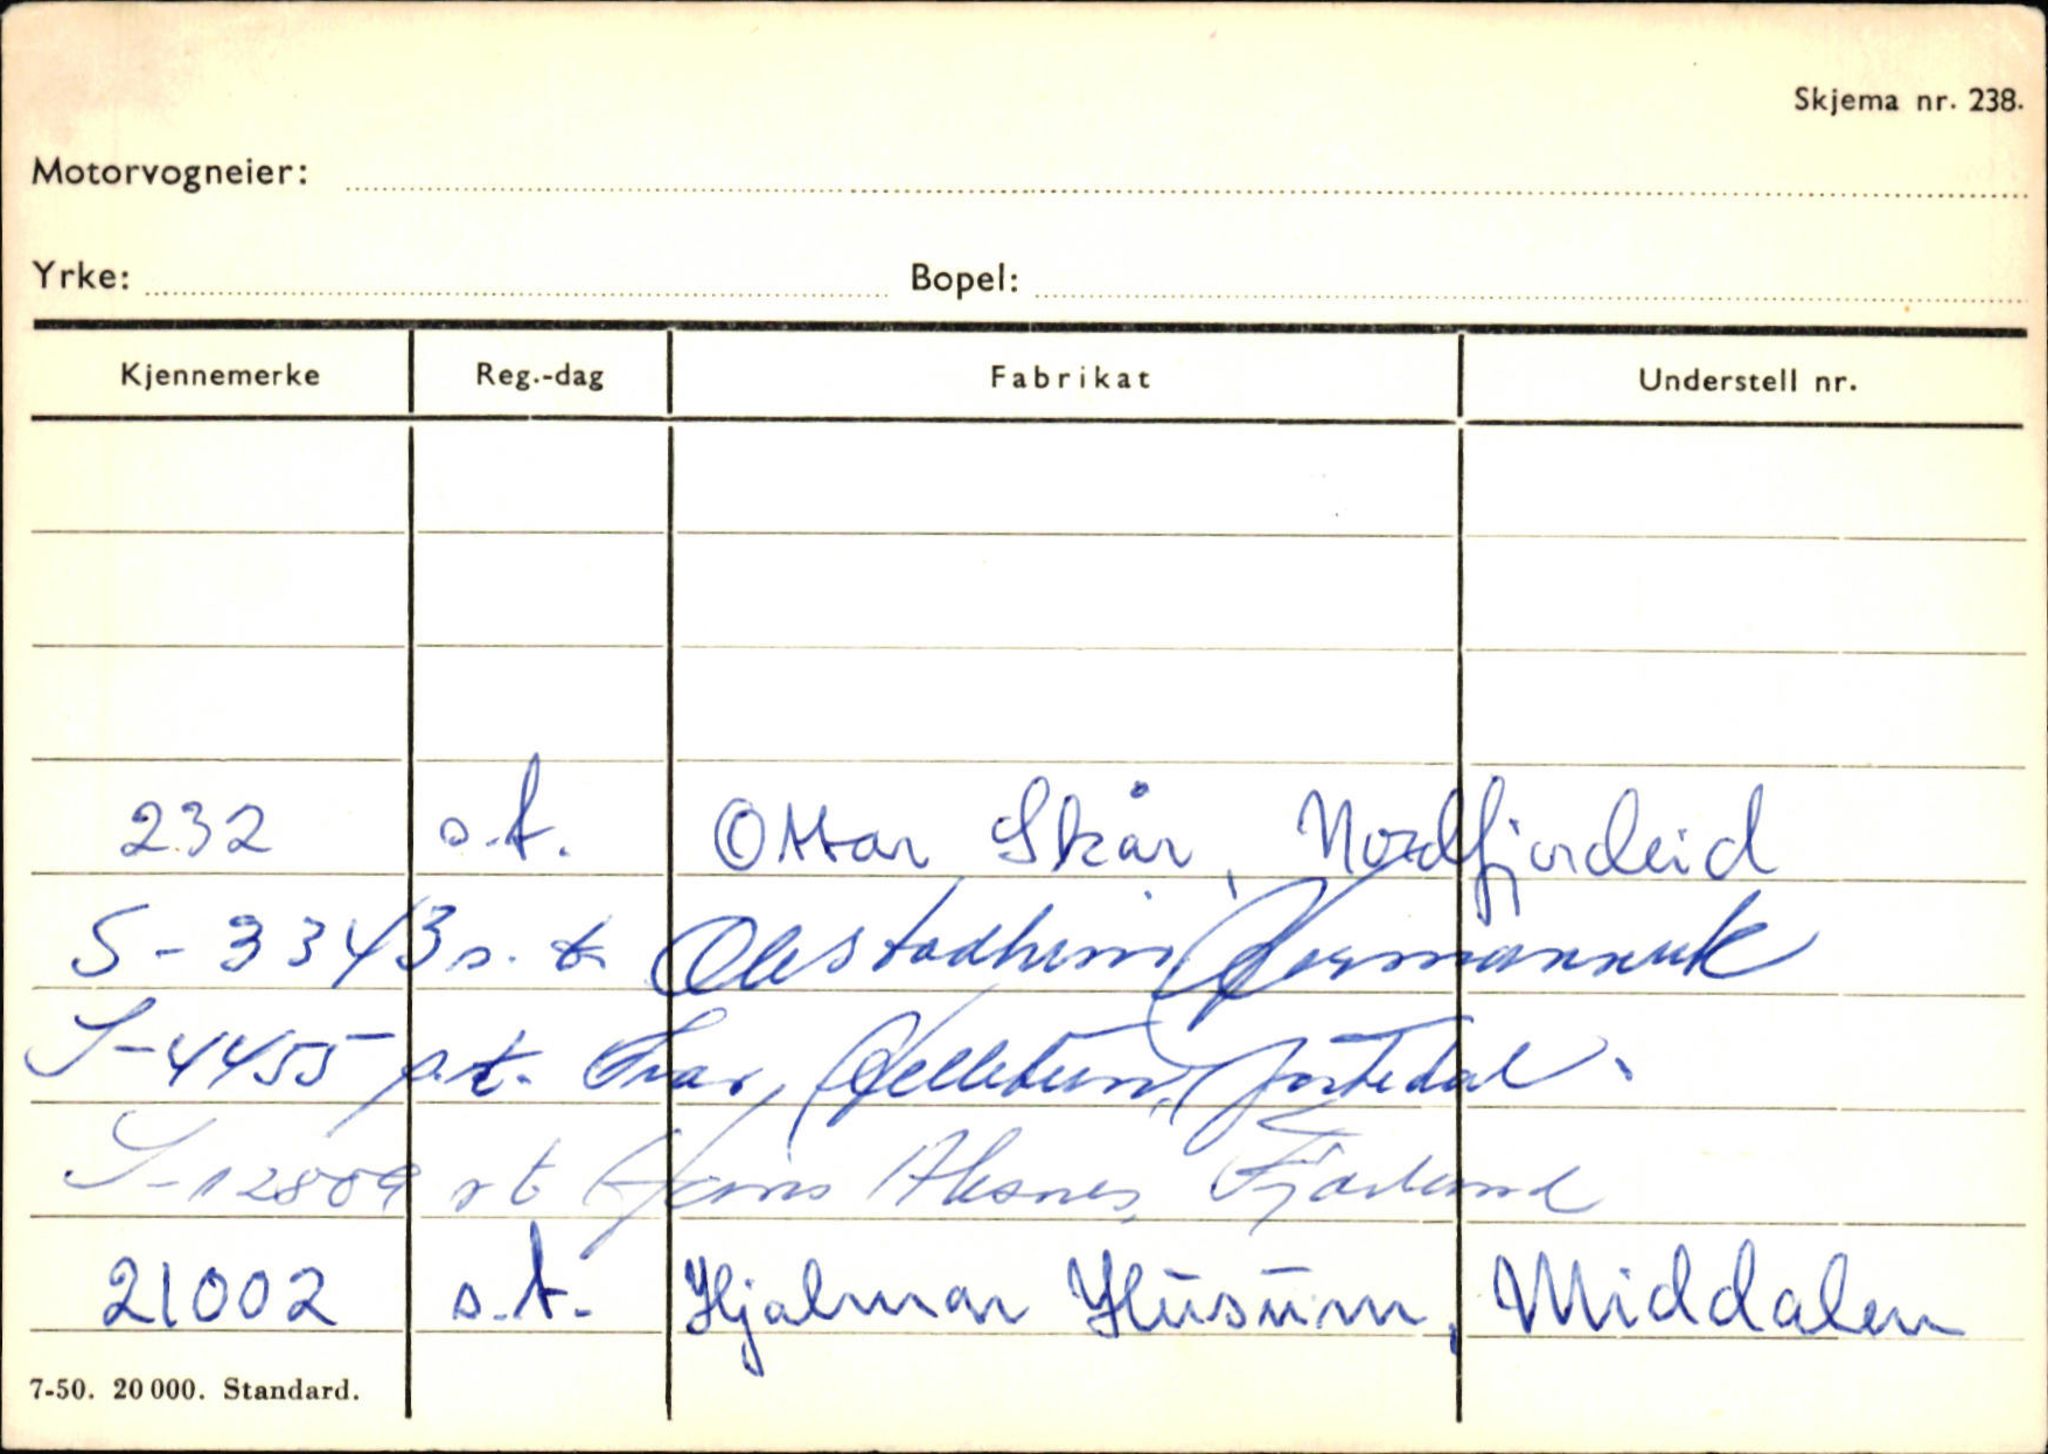 Skjema nr. 238.
Motorvogneier:
Yrke: Bopel:
Kjennemerke Reg.-dag Fabrikat Understell nr.
232 s.t. Ottar Skår, Nordfjordeid
S-3343 s.t.
S-4455 s.t. Ivar, Jostedal.
S-12809 st Jens Alsnes, Fjærland
21002 s.t. Hjalmar Husum, Middalen
7-50. 20 000. Standard.